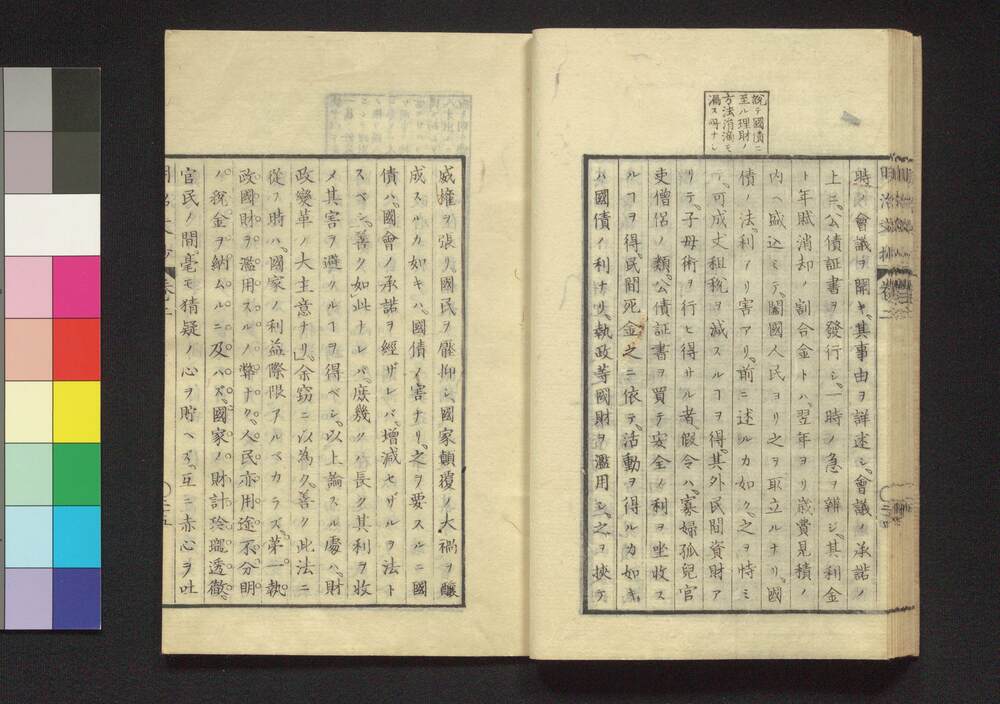 説テ國債ニ
至ル理財ノ
方法涓滴モ
漏ス所ナシ
時ハ會議ヲ開キ、其事由ヲ詳述シ、會議ノ承諾ノ
上ニ、公債証書ヲ發行シ、一時ノ急ヲ辨ジ、其利金
ト年賦消却ノ割合金トハ、翌年ヨリ歳費見積ノ
内ヘ込ミテ、闔國人民ヨリ之ヲ取立ルナリ、國
債ノ法、利アリ害アリ、前ニ述ルカ如ク、之ヲ恃ミ
テ、可成丈租税ヲ減スルヿヲ得、其外民間資財ア
リテ、子母術ヲ行ヒ得サル者、假令ハ、寡婦孤兒官
吏僧侶ノ類、公債証書ヲ買テ安全ノ利ヲ坐收ス
ルヿヲ得、民間死金之ニ依テ、活動ヲ得ルカ如キ
ハ國債ノ利ナリ、執政等國財ヲ濫用シ、之ヲ挾テ
威權ヲ張リ、國民ヲ壓抑シ、國家顛覆ノ大禍ヲ釀
成スルカ如キハ、國債ノ害ナリ、之ヲ要スルニ國
債ハ、國會ノ承諾ヲ經ザレバ、增減セザルヲ法ト
スベシ、善ク如此トレバ、庶幾クハ長ク其利ヲ收
メ其害ヲ避クルヿヲ得ベシ、以上論スル處ハ、財
政變革ノ大主意ナリ」余窃ニ以為ク、善ク此法ニ
從フ時ハ、國家ノ利益際限アルベカラズ、第一執
政國財ヲ濫用スルノ弊ナク、人民亦用途不分明
ノ税金ヲ納ムルニ及ハズ、國家ノ財計玲瓏透徹、
官民ノ間、毫モ猜疑ノ心ヲ貯ヘズ、互ニ赤心ヲ吐